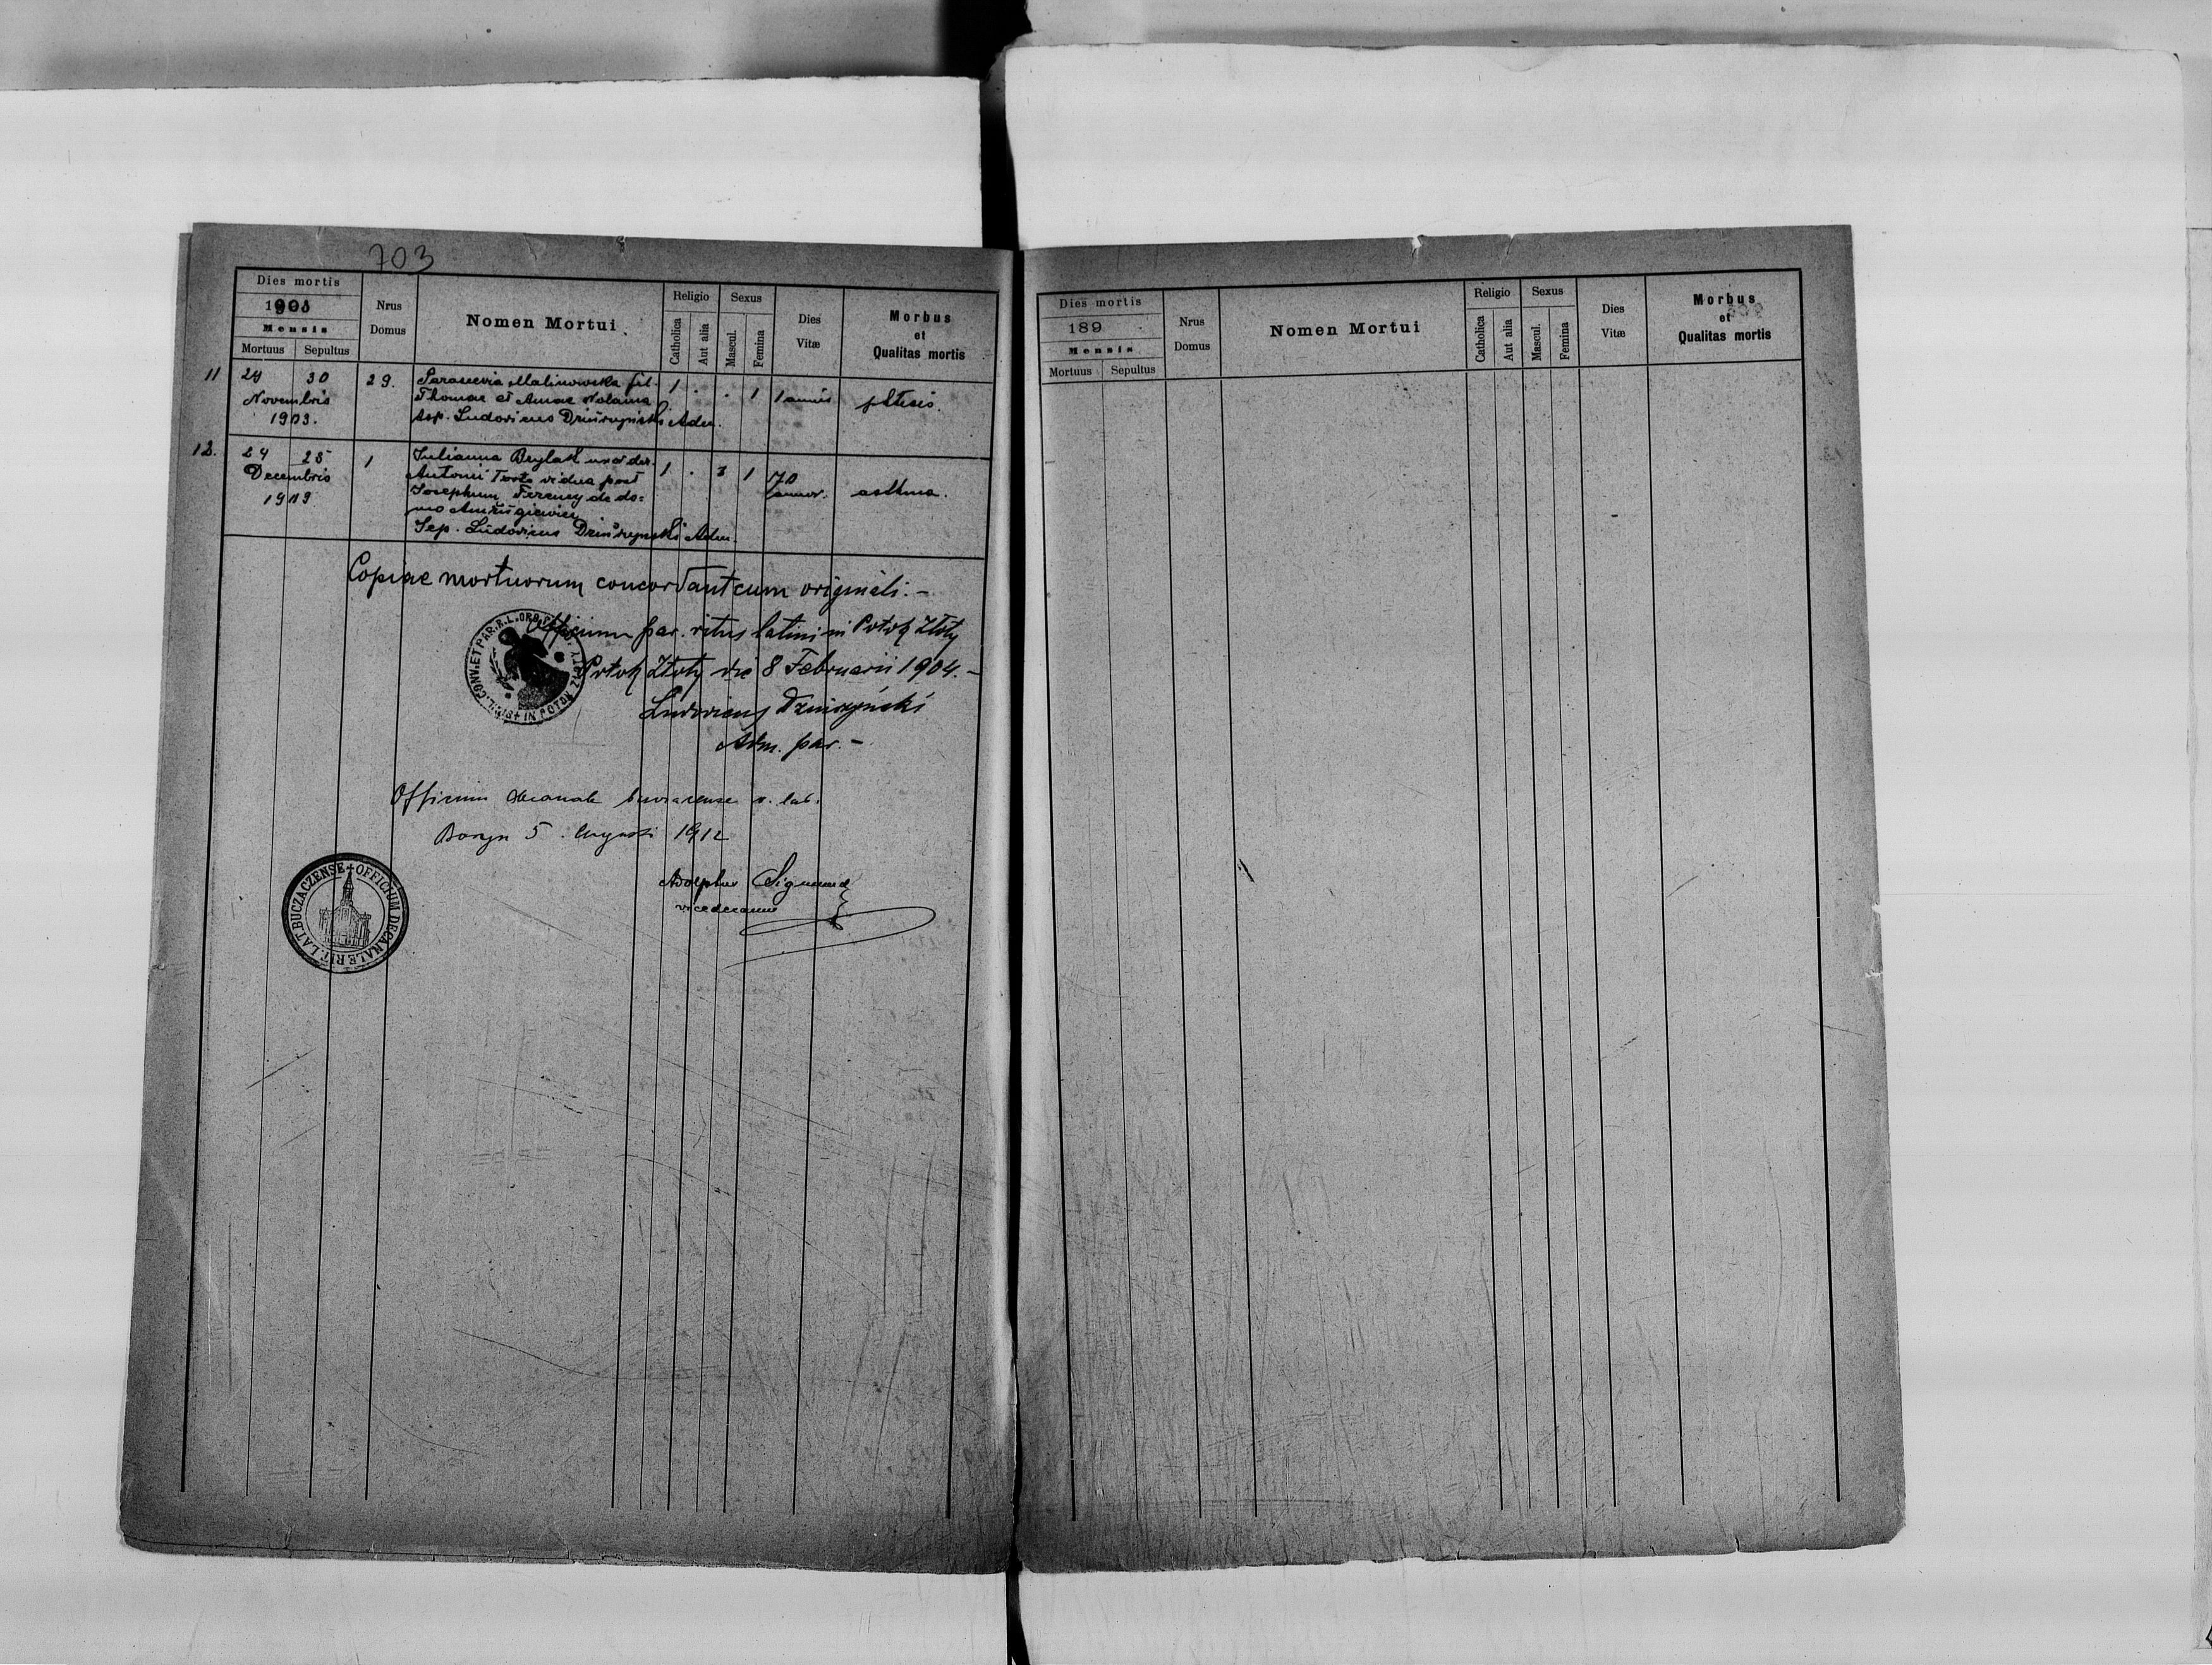 703
Dies mortis
1903
Mensis
Mortuus Sepultus
Nrus Domus
Nomen Mortui
Religio
Catholica
Aut alia
Sexus
Mascul.
Femina
Dies Vitæ
Morbus
et
Qualitas mortis
11 29 30 29. Parascevia Malinowska fil. 1 . . 1 1 anni
Novembris Thomae et Annae
1903. Sep. Ludovicus Dziurzyński Adm.
12. 24 25 1 Julianna Brylak uxor der. 1 . 1 70
Decembris Antonii vidua post annor. asthma.
1903 Josephum Ferency de do=
mo
Sep. Ludovicus Dziurzynski Adm.
Copiae mortuorum concordant cum originali. -
Officium par. ritus latini in Potok Złoty
Potok Złoty die 8 Februarii 1904. -
Ludovicus Dziurzyński
Adm. par. -
Officium decanale r. lat.
5. Augusti 1912
Adolphus Sigmund
vicedecanus
OFFICIUM DECANALE RIT. LAT. BUCZACZENSE
Dies mortis
189
Mensis
Mortuus Sepultus
Nrus
Domus
Nomen Mortui
Religio
Catholica
Aut alia
Sexus
Mascul.
Femina
Dies
Vitæ
Morbus
et
Qualitas mortis